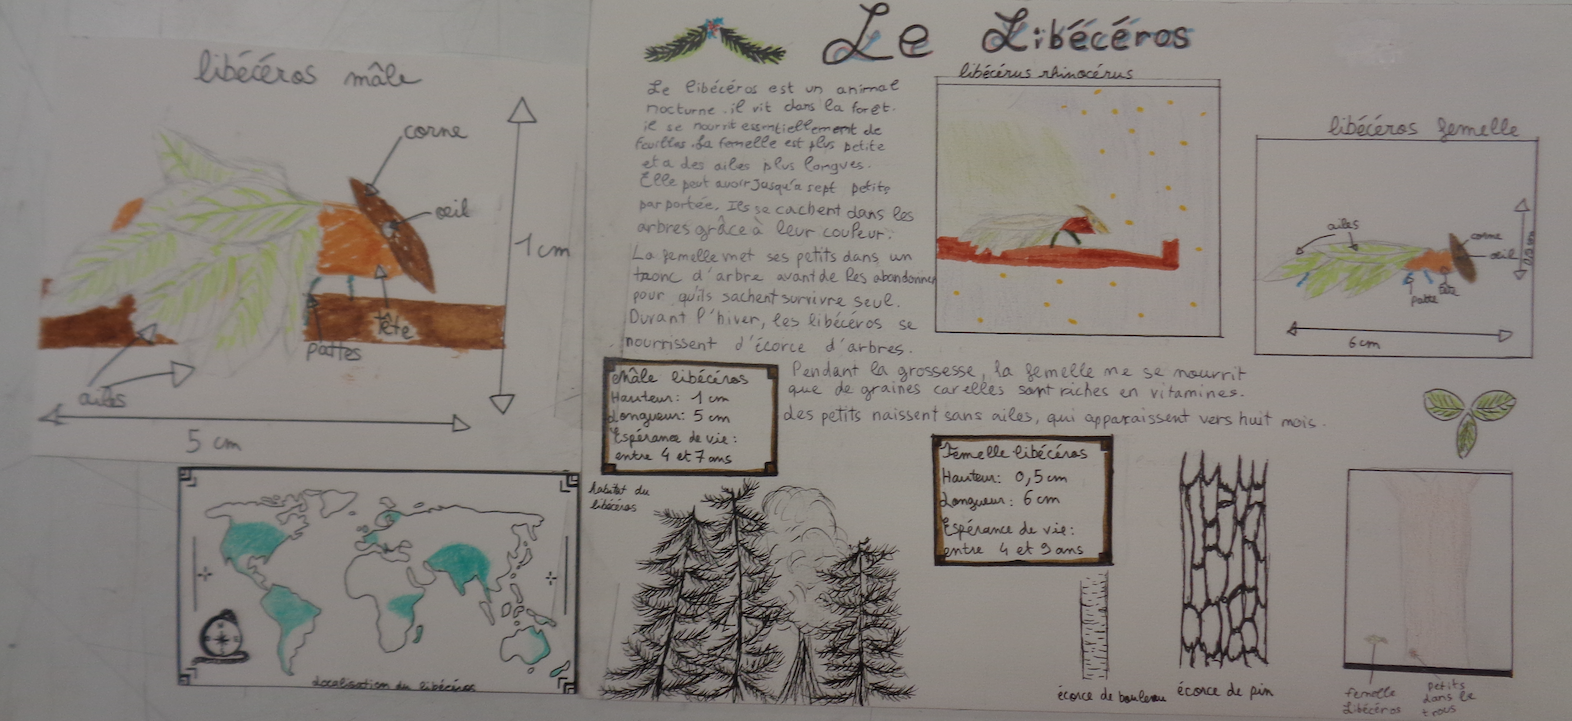 libécéros mâle
corne
œil
1 cm
tête
pattes
ailes
5 cm
Localisation du libécéros
Le Libécéros
Le libécéros est un animal
nocturne. il vit dans la forêt.
il se nourrit essentiellement de
feuilles. La femelle est plus petite
et a des ailes plus longues.
Elle peut avoir jusqu'a sept petits
par portée. Ils se cachent dans les
arbres grâce à leur couleur.
La femelle met ses petits dans un
tronc d'arbre avant de les abandonner
pour qu'ils sachent survivre seul.
Durant l'hiver, les libécéros se
nourrissent d'écorce d'arbres.
libécérus rhinocérus
libécéros femelle
ailes
corne
œil
tête
patte
0,5 cm
6 cm
Pendant la grossesse, la femelle ne se nourrit
que de graines car elles sont riches en vitamines.
Les petits naissent sans ailes, qui apparaissent vers huit mois.
Mâle libécéros
Hauteur: 1 cm
Longueur: 5 cm
Espérance de vie:
entre 4 et 7 ans
habitat du
libécéros
Femelle libécéros
Hauteur: 0,5 cm
Longueur: 6 cm
Espérance de vie:
entre 4 et 9 ans
écorce de bouleau
écorce de pin
femelle
Libécéros
petits
dans le
trous